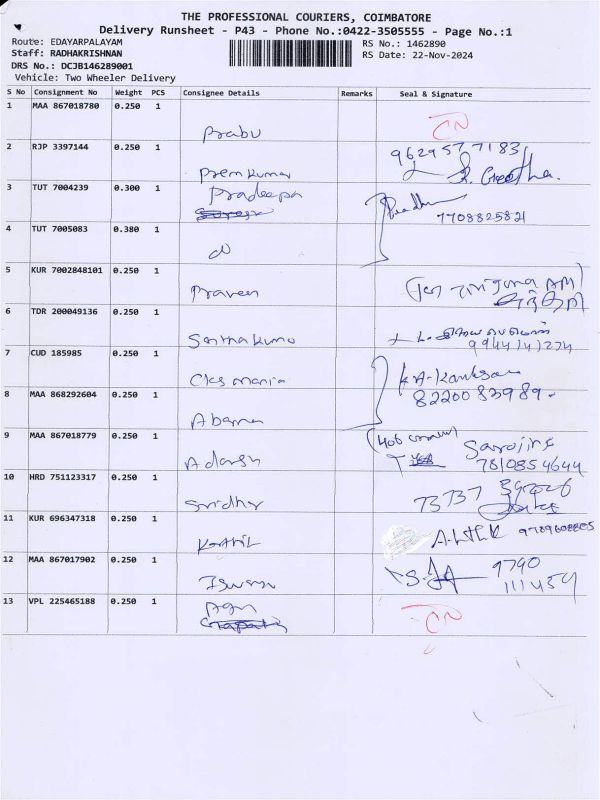 THE PROFESSIONAL COURIERS, COIMBATORE
Delivery Runsheet - P43 - Phone No.:0422-3505555 - Page No.:1
Route: EDAYARPALAYAM
RS No.: 1462890
Staff: RADHAKRISHNAN
RS Date: 22-Nov-2024
DRS No.: DCJB146289001
Vehicle: Two Wheeler Delivery
S No Consignment No Weight PCS Consignee Details Remarks Seal & Signature
1 MAA 867018780 0.250 1
Prabu CN
2 RJP 3397144 0.250 1 9629577183
Prem kumar S. Geetha.
3 TUT 7004239 0.300 1 Pradeepa
7708825821
4 TUT 7005083 0.380 1
5 KUR 7002848101 0.250 1
Praveen
6 TDR 200049136 0.250 1
Santha kumar
7 CUD 185985 0.250 1
8 MAA 868292604 0.250 1 8220083989
Abarna
9 MAA 867018779 0.250 1
Adarsh 7810854644
10 HRD 751123317 0.250 1
Sridhar 73737
11 KUR 696347318 0.250 1
Karthik 9789608805
12 MAA 867017902 0.250 1 9790
111454
13 VPL 225465188 0.250 1
CN